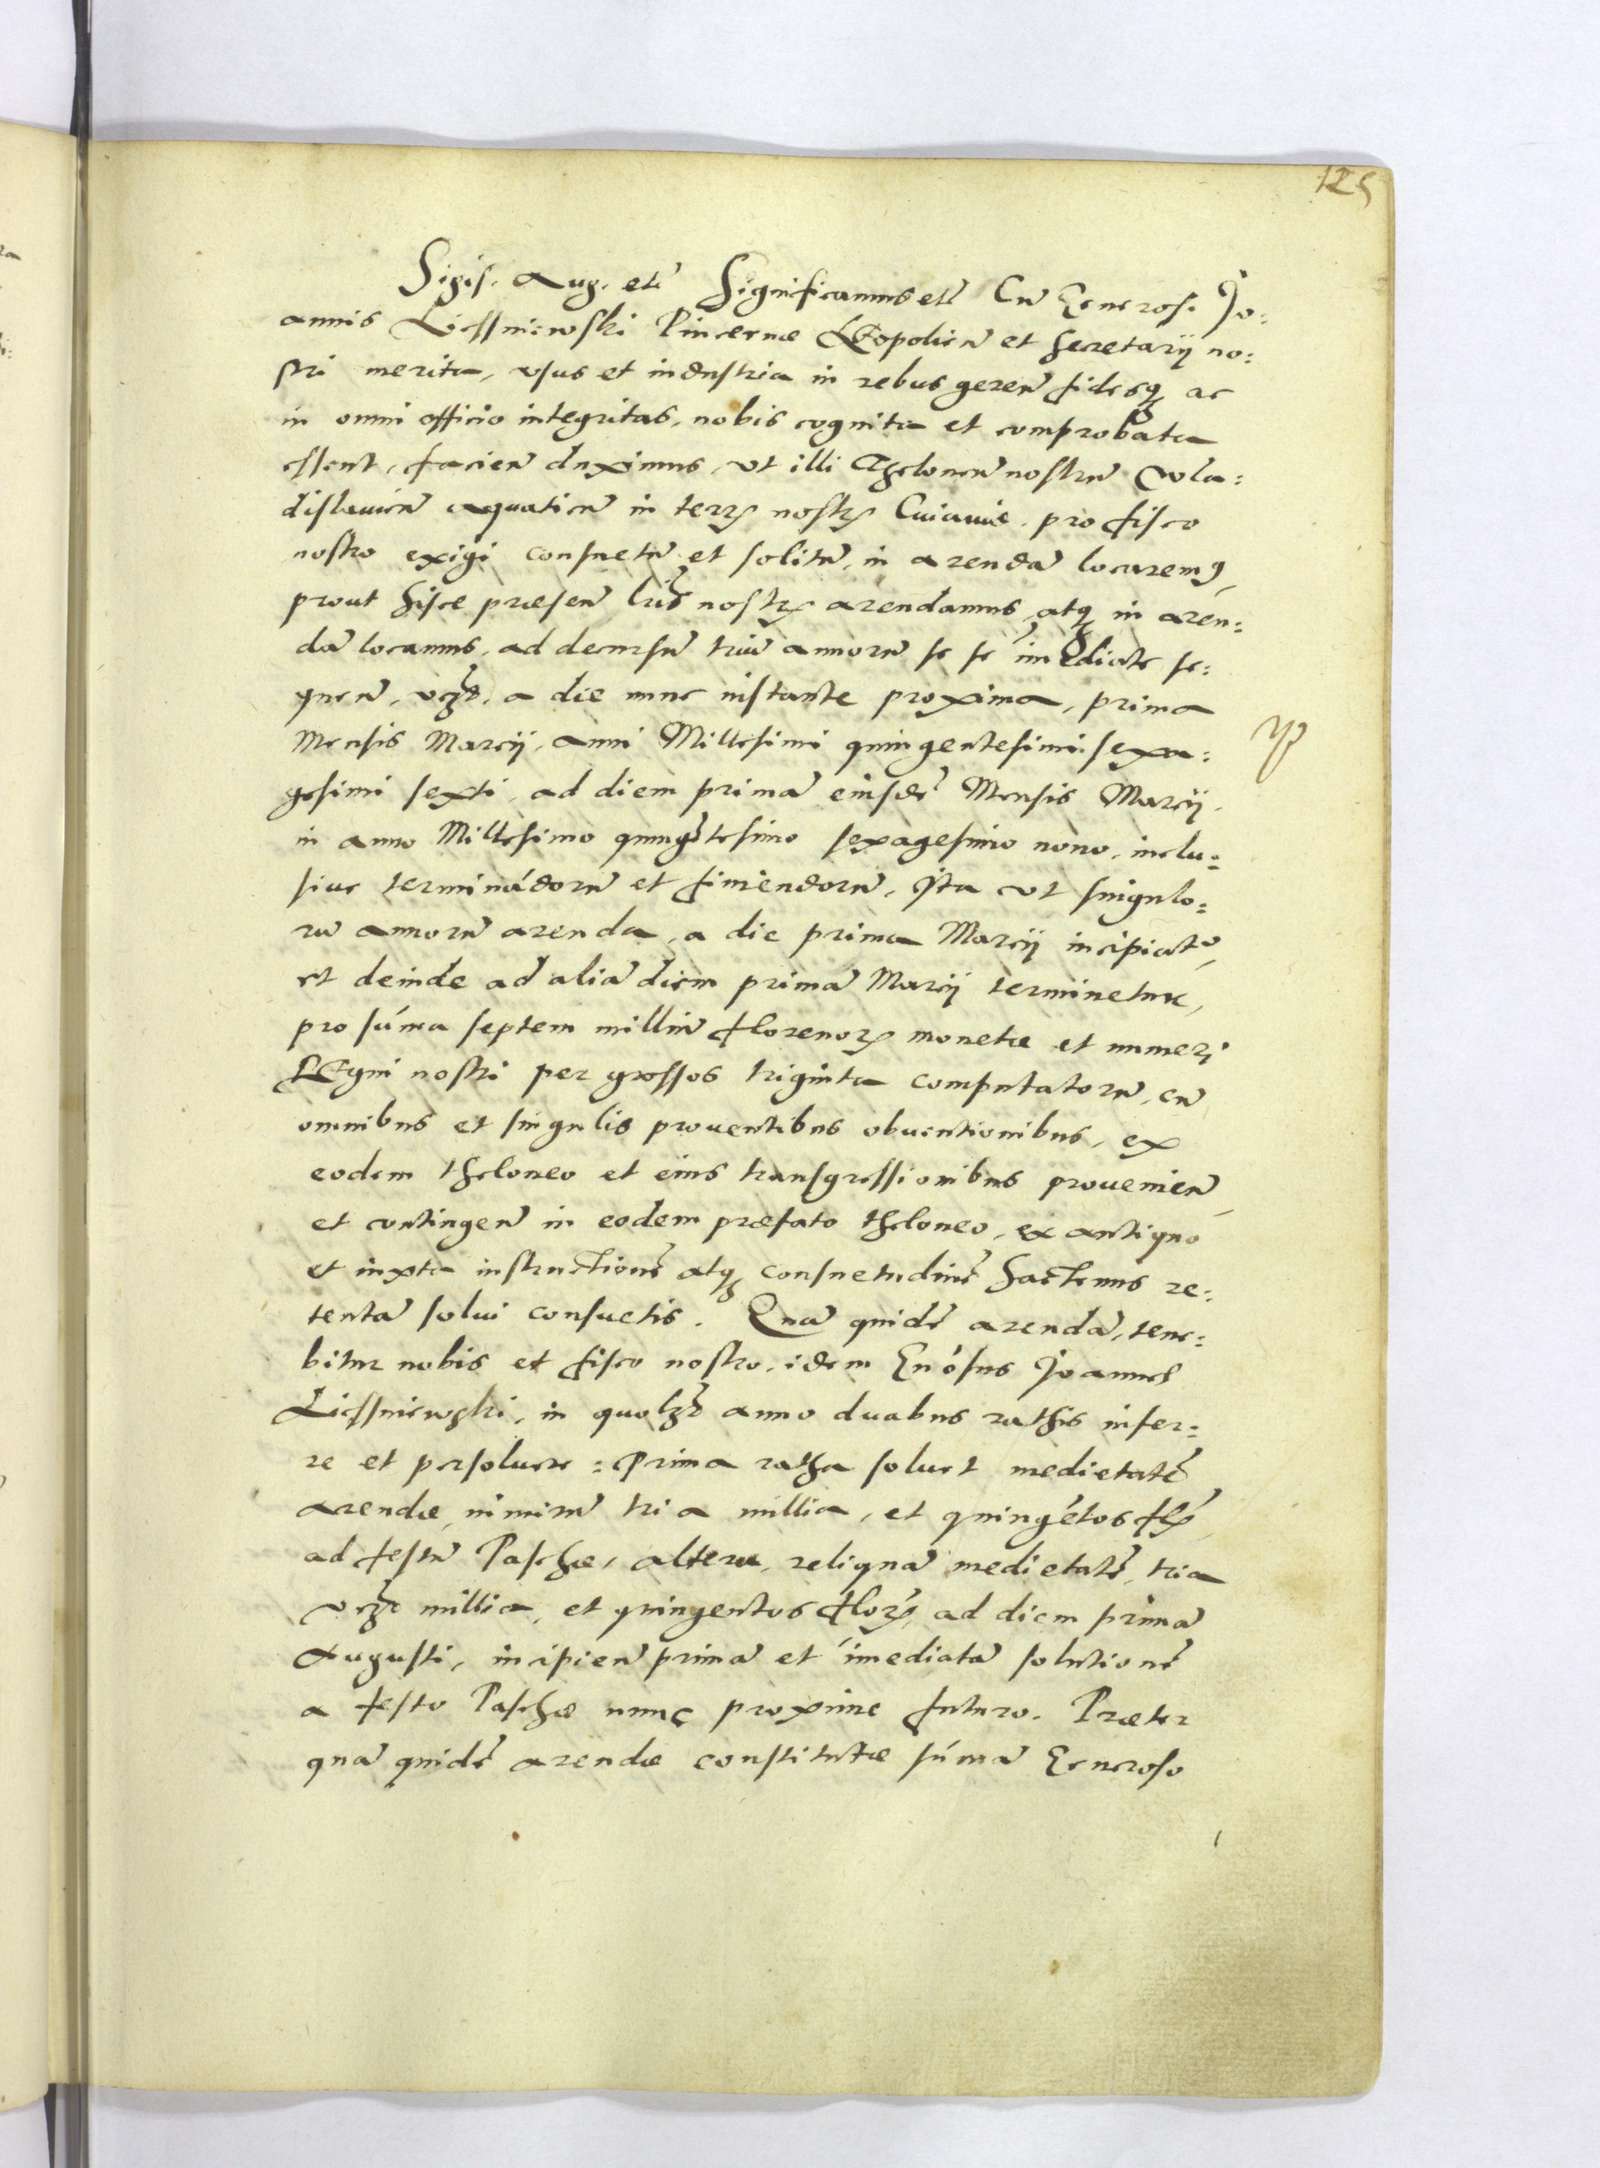 125
Sigis. Aug. etc̃ Significamus etc̃ Cũ Generos. Jo:
annis Liessniewski Pincernæ Leopolieñ et Secretarij no:
stri merita, vsus et industria in rebus gereñ fidesq̃ ac
in omni officio integritas, nobis cognita et comprobata
essent, facieñ duximus, vt illi Theloneũ nostrũ Vla:
dislauieñ aquaticũ in terrꝭ nostrꝭ Cuiauiæ. pro fisco
nostro exigi consuetũ et solitũ, in arendã locaremꝰ,
prout hisce præseñ lrı̃s nostrꝭ arendamus, atq̃ in aren:
dã locamus, ad decursũ triũ annorũ se se im̃ediate se:
queñ, vcz̃. a die nunc instante proxima, prima
Mensis Marcij, anni Millesimi quingentesimi sexa:
gesimi sexti, ad diem primã eiusdẽ Mensis Marcij.
in anno Millesimo quingẽtesimo sexagesimo nono, inclu:
siue terminãdorũ et finiendorũ, Ita vt singulo:
rũ annorũ arenda, a die prima Marcij incipiatᷣ,
et deinde ad aliã diem primã Marcij terminetur,
pro sũma septem milliũ florenorꝭ monetæ et numeri
Regni nostri per grossos triginta computatorũ, cũ
omnibus et singulis prouentibus obuentionibus, ex
eodem theloneo et eius transgressionibus prouenieñ,
et contingeñ in eodem præfato theloneo, ex antiquo
et iuxta instructionẽ atq̃ consuetudinẽ hactenus re:
tentã solui consuetis. Quã quidẽ arendã, tene:
bitur nobis et fisco nostro, idem Gnõsus Joannes
Liessniewski, in quolz̃ anno duabus rathis infer:
re et persoluere: Prima ratha soluet medietatẽ
arendæ, nimirũ tria millia, et quingẽtos flꝭ
ad festũ Paschæ, altera, reliquã medietatẽ, tria
vcz̃ millia, et quingentos florꝭ, ad diem primã
Augusti, incipieñ primã et im̃ediatã solutionẽ
a festo Paschæ nunc proxime futuro. Præter
quã quidẽ arendæ constitutæ sũmã Generoso